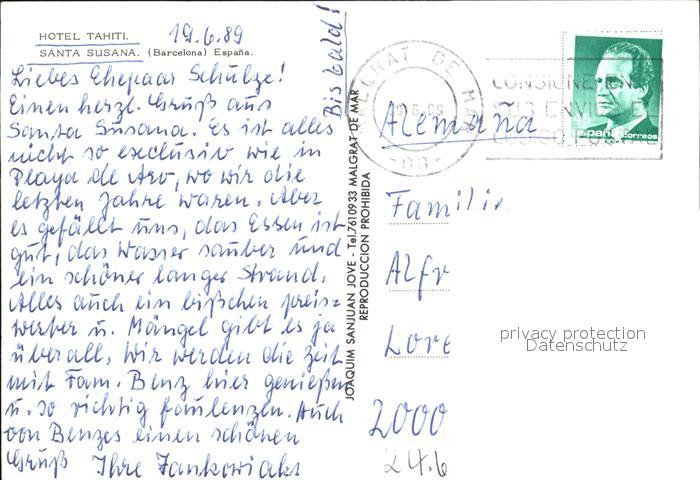 HOTEL TAHITI.
SANTA SUSANA. (Barcelona) España.
19.6.89
Liebes Ehepaar Schulze!
Einen herzl. Gruß aus
Santa Susana. Es ist alles
nicht so exclusiv wie in
Playa de Aro, wo wir die
letzten Jahre waren. Aber
es gefällt uns, das Essen ist
gut, das Wasser sauber und
ein schöner langer Strand.
Alles auch ein bißchen preis=
werter u. Mängel gibt es ja
überall. Wir werden die Zeit
mit Fam. Benz hier genießen
u. so richtig faulenzen. Auch
von Benzes einen schönen
Gruß Ihre Jankowiaks
Bis bald!
JOAQUIM SANJUAN JOVE - Tel. 7610933 MALGRAT DE MAR
REPRODUCCION PROHIBIDA
MALGRAT DE M
-08-
CONSIGNE EN
SUS ENVI
45
España correos
Alemaña
Famili
Alfr
Lore
2000
24.6
privacy protection
Datenschutz